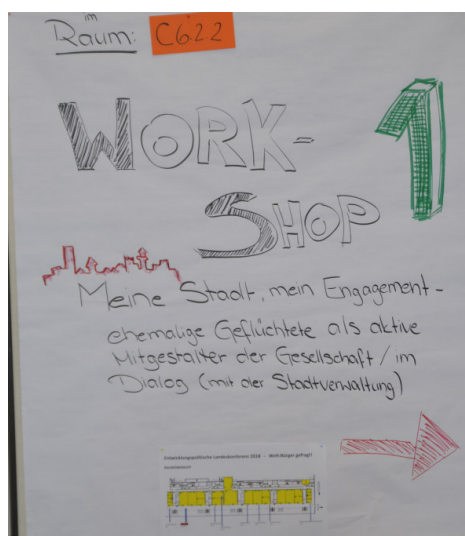 im
Raum: C6.22
WORK-
SHOP 1
Meine Stadt, mein Engagement -
ehemalige Geflüchtete als aktive
Mitgestalter der Gesellschaft / im
Dialog (mit der Stadtverwaltung)
Entwicklungspolitische Landeskonferenz 2018 - Welt:Bürger gefragt!